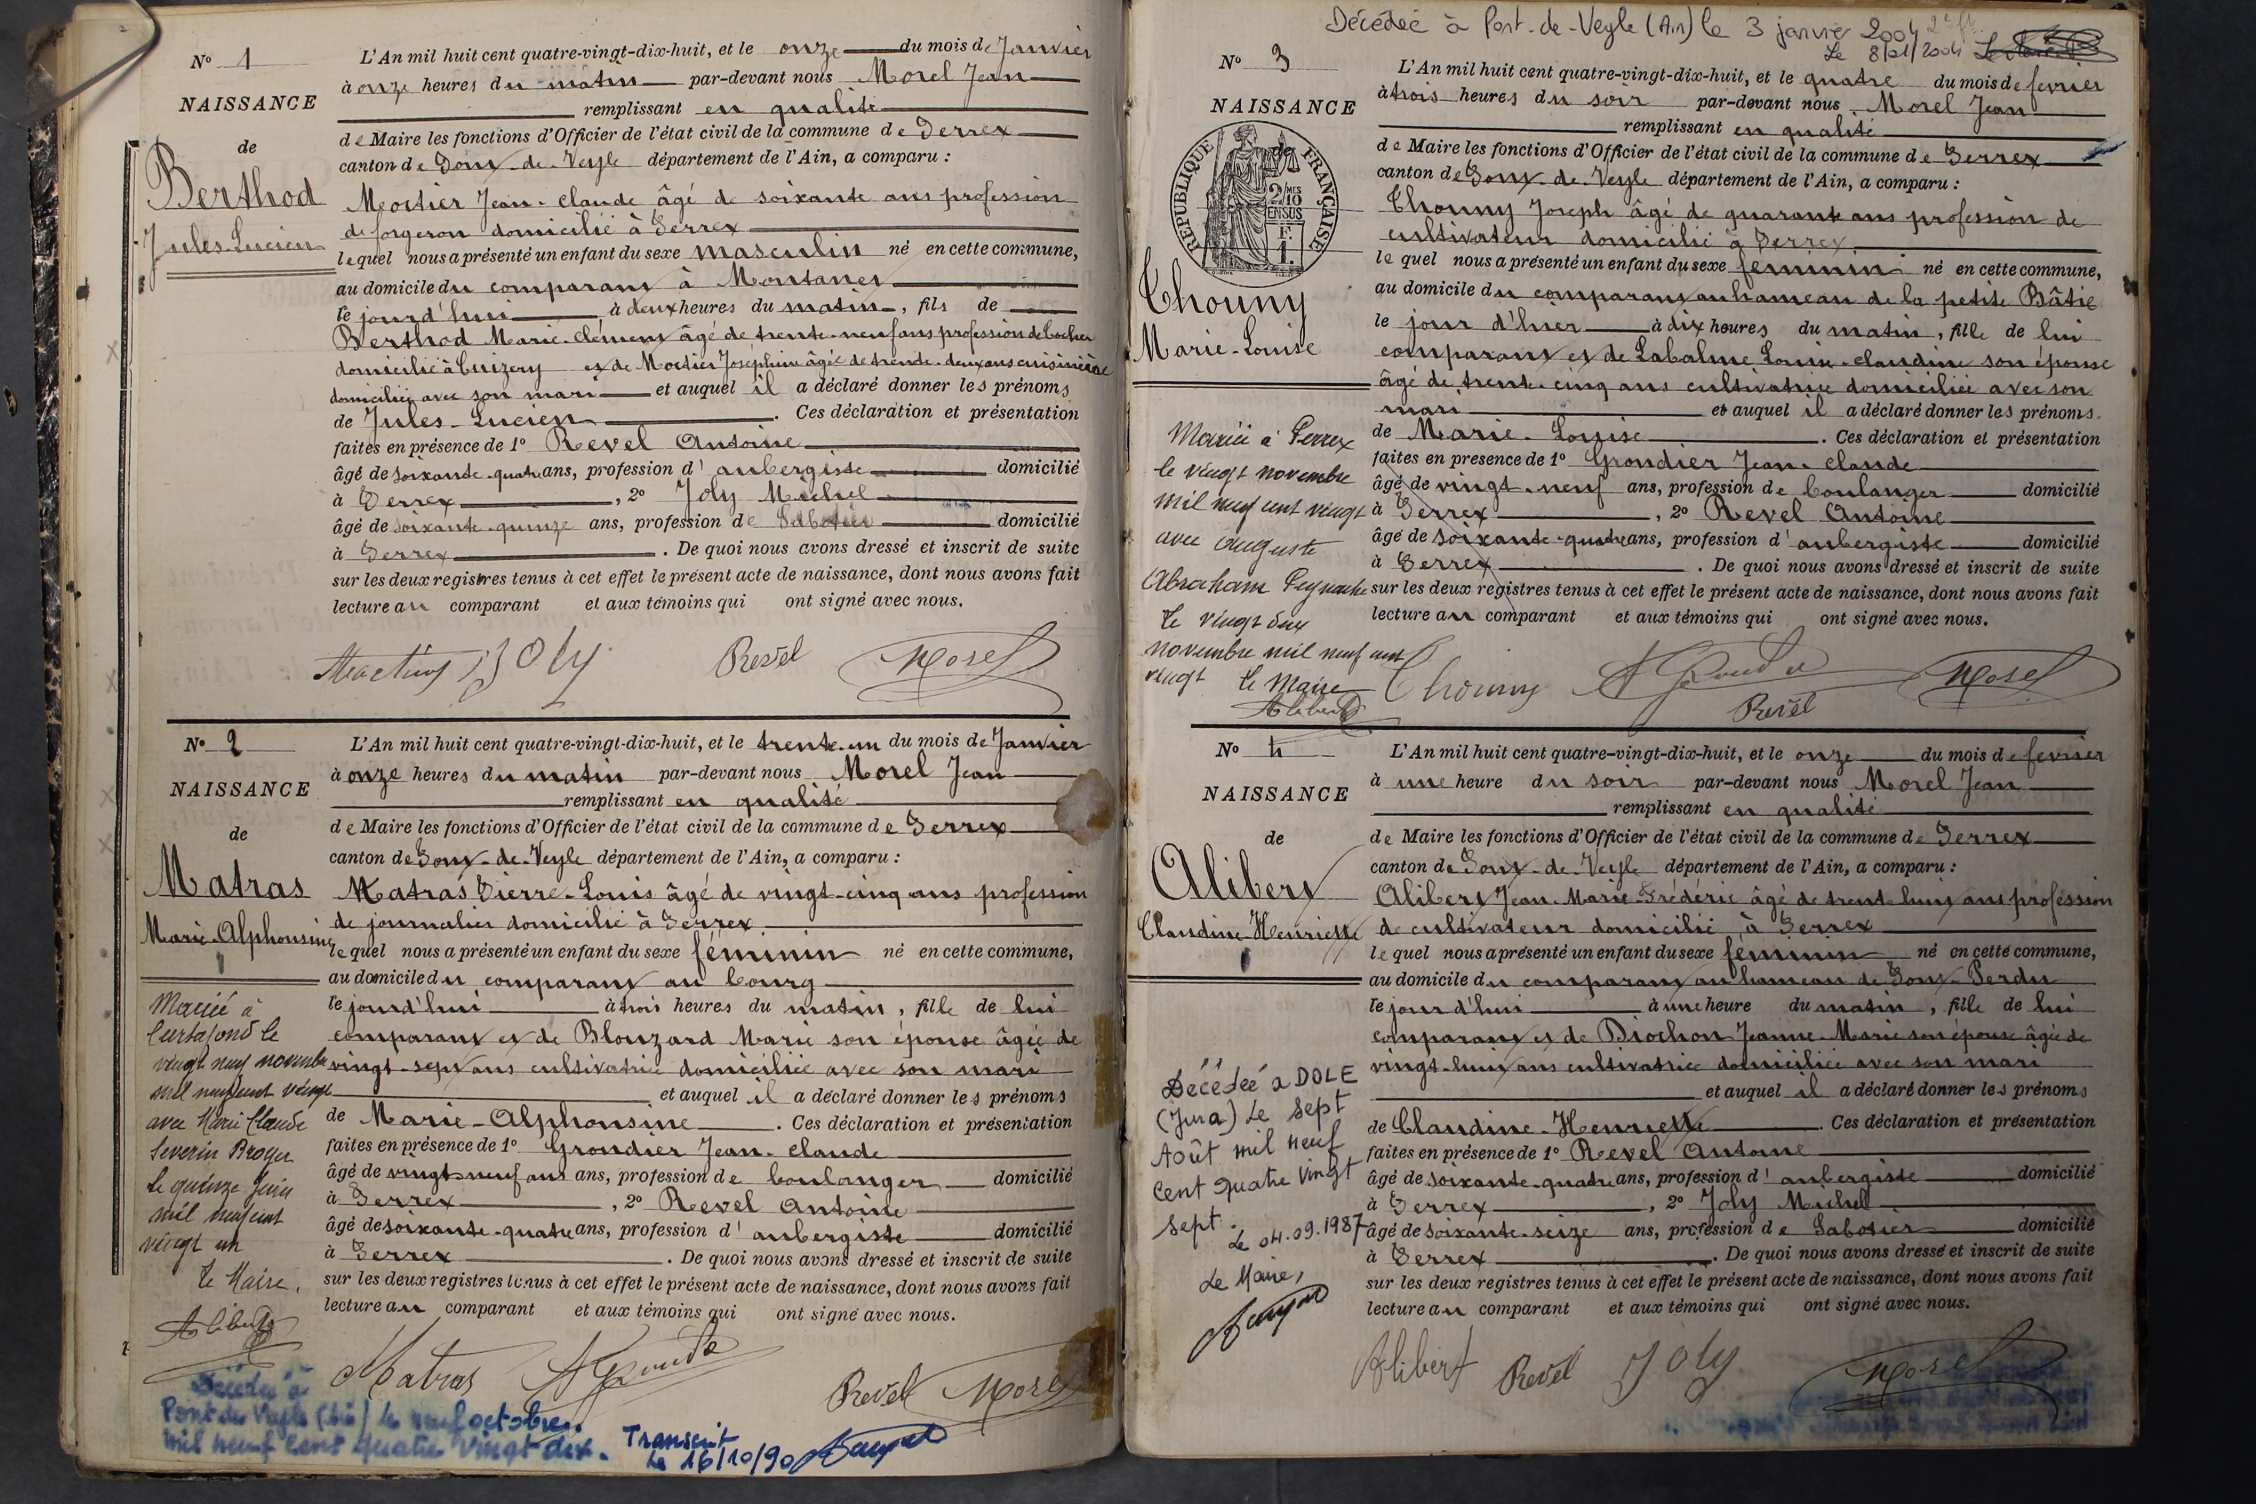 N° 1
NAISSANCE
de
Berthod
Jules-Lucien
L'An mil huit cent quatre-vingt-dix-huit, et le onze du mois de Janvier
à onze heures du matin par-devant nous Morel Jean
remplissant en qualité
de Maire les fonctions d'Officier de l'état civil de la commune de Perrex
canton de Pont-de-Veyle département de l'Ain, a comparu :
Moctier Jean-claude âgé de soixante ans profession
de forgeron domicilié à Perrex
lequel nous a présenté un enfant du sexe masculin né en cette commune,
au domicile du comparant à Montanet
le jourd'hui à deux heures du matin, fils de
Berthod Marie-Clément âgé de trente-neuf ans profession de cocher
domicilié à Cuizery et de Moctier Joséphine âgée de trente-deux ans cuisinière
domiciliée avec son mari et auquel il a déclaré donner les prénoms
de Jules-Lucien. Ces déclaration et présentation
faites en présence de 1° Revel Antoine
âgé de soixante-quatre ans, profession d'aubergiste domicilié
à Perrex, 2° Joly Michel
âgé de soixante-quinze ans, profession de Sabotier domicilié
à Perrex. De quoi nous avons dressé et inscrit de suite
sur les deux registres tenus à cet effet le présent acte de naissance, dont nous avons fait
lecture au comparant et aux témoins qui ont signé avec nous.
Joly Revel Morel
N° 2
NAISSANCE
de
Matras
Marie-Alphonsine
L'An mil huit cent quatre-vingt-dix-huit, et le trente-un du mois de Janvier
à onze heures du matin par-devant nous Morel Jean
remplissant en qualité
de Maire les fonctions d'Officier de l'état civil de la commune de Perrex
canton de Pont-de-Veyle département de l'Ain, a comparu :
Matras Pierre-Louis âgé de vingt-cinq ans profession
de journalier domicilié à Perrex
lequel nous a présenté un enfant du sexe féminin né en cette commune,
au domicile du comparant au bourg
le jourd'hui à trois heures du matin, fille de lui
comparant et de Blouzard Marie son épouse âgée de
vingt-sept ans cultivatrice domiciliée avec son mari
et auquel il a déclaré donner les prénoms
de Marie-Alphonsine. Ces déclaration et présentation
faites en présence de 1° Grondier Jean-claude
âgé de vingt-neuf ans ans, profession de boulanger domicilié
à Perrex, 2° Revel Antoine
âgé de soixante-quatre ans, profession d'aubergiste domicilié
à Perrex. De quoi nous avons dressé et inscrit de suite
sur les deux registres tenus à cet effet le présent acte de naissance, dont nous avons fait
lecture au comparant et aux témoins qui ont signé avec nous.
Mariée à
Curtafond le
vingt neuf novembre
mil neuf cent vingt
avec Marie Claude
Severin Broyer
le quinze Juin
mil neuf cent
vingt un
Le Maire,
Alibert
Matras Revel Morel
Décédée à
Pont de Veyle (Ain) le neuf octobre
mil neuf cent quatre vingt dix.
Transcrit
le 16/10/90
Décédée à Pont-de-Veyle (Ain) le 3 janvier 2004
Le 8/01/2004
N° 3
NAISSANCE
de
RÉPUBLIQUE FRANÇAISE
2/MES
2/10
EN SUS
F.
1.
Chouny
Marie-Louise
L'An mil huit cent quatre-vingt-dix-huit, et le quatre du mois de fevrier
à trois heures du soir par-devant nous Morel Jean
remplissant en qualité
de Maire les fonctions d'Officier de l'état civil de la commune de Perrex
canton de Pont-de-Veyle département de l'Ain, a comparu :
Chouny Joseph âgé de quarante ans profession de
cultivateur domicilié à Perrex
lequel nous a présenté un enfant du sexe féminin né en cette commune,
au domicile du comparant au hameau de la petite Bâtie
le jour d'hier à dix heures du matin, fille de lui
comparant et de Labalme Louise-claudine son épouse
âgé de trente-cinq ans cultivatrice domiciliée avec son
mari et auquel il a déclaré donner les prénoms
de Marie-Louise. Ces déclaration et présentation
faites en présence de 1° Grondier Jean-claude
âgé de vingt-neuf ans, profession de boulanger domicilié
à Perrex, 2° Revel Antoine
âgé de soixante-quatre ans, profession d'aubergiste domicilié
à Perrex. De quoi nous avons dressé et inscrit de suite
sur les deux registres tenus à cet effet le présent acte de naissance, dont nous avons fait
lecture au comparant et aux témoins qui ont signé avec nous.
Mariée à Perrex
le vingt novembre
mil neuf cent vingt
avec Auguste
Abraham
Le vingt deux
novembre mil neuf cent
vingt Le Maire
Alibert
Chouny Revel Morel
N° 4
NAISSANCE
de
Alibert
Claudine-Henriette
L'An mil huit cent quatre-vingt-dix-huit, et le onze du mois de fevrier
à une heure du soir par-devant nous Morel Jean
remplissant en qualité
de Maire les fonctions d'Officier de l'état civil de la commune de Perrex
canton de Pont-de-Veyle département de l'Ain, a comparu :
Alibert Jean-Marie-Frédéric âgé de trente-huit ans profession
de cultivateur domicilié à Perrex
lequel nous a présenté un enfant du sexe féminin né en cette commune,
au domicile du comparant au hameau de Pont-Perdu
le jourd'hui à une heure du matin, fille de lui
comparant et de Diochon Jeanne-Marie son épouse âgée de
vingt-huit ans cultivatrice domiciliée avec son mari
et auquel il a déclaré donner les prénoms
de Claudine-Henriette. Ces déclaration et présentation
faites en présence de 1° Revel Antoine
âgé de soixante-quatre ans, profession d'aubergiste domicilié
à Perrex, 2° Joly Michel
âgé de soixante-seize ans, profession de Sabotier domicilié
à Perrex. De quoi nous avons dressé et inscrit de suite
sur les deux registres tenus à cet effet le présent acte de naissance, dont nous avons fait
lecture au comparant et aux témoins qui ont signé avec nous.
Décédée à DOLE
(Jura) Le sept
Août mil neuf
cent quatre vingt
sept.
Le 04.09.1987
Le Maire,
Alibert Revel Joly Morel